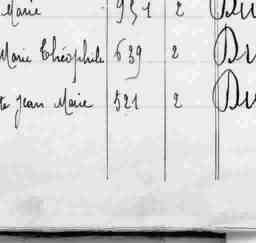 Marie 951 2 Du
Marie Théophile 639 2 Du
Jean Marie 521 2 Du